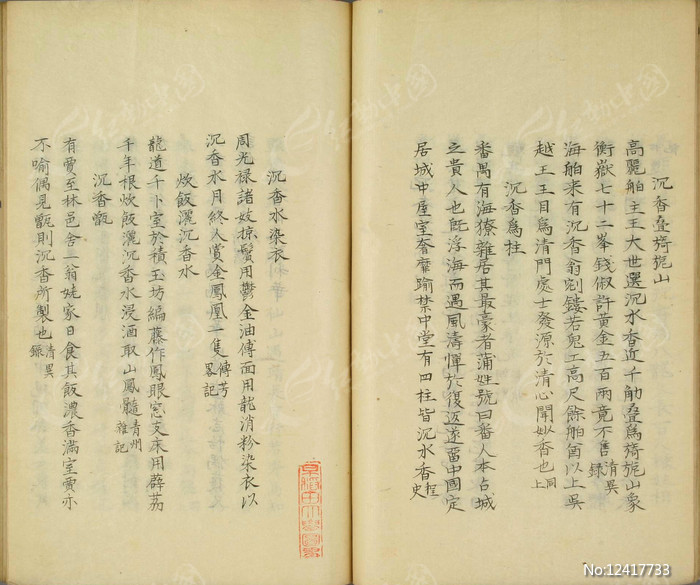 沉香叠旖旎山
高麗舶主王大世選沉水香近千觔叠爲旖旎山象
衡嶽七十二峯錢俶許黄金五百兩竟不售清異錄
海舶来有沉香翁剜鏤若鬼工高尺餘舶酋以上吳
越王王目爲清門處士發源於清心聞妙香也同上
沉香爲柱
番禺有海獠雜居其最豪者蒲姓號曰番人本占城
之貴人也旣浮海而遇風濤憚於復返遂畱中國定
居城中屋室奢靡踰禁中堂有四柱皆沉水香桯史
沉香水染衣
周光禄諸妓掠鬢用鬱金油傅面用龍消粉染衣以
沉香水月終人賞金鳳凰一隻傳芳畧記
炊飯灑沉香水
龍道千卜室於積玉坊編藤作鳳眼窓支床用薜荔
千年根炊飯灑沉香水浸酒取山鳳髓青州雜記
沉香甑
有賈至林邑舍一翁姥家日食其飯濃香滿室賈亦
不喻偶見甑則沉香所製也清異錄
No:12417733